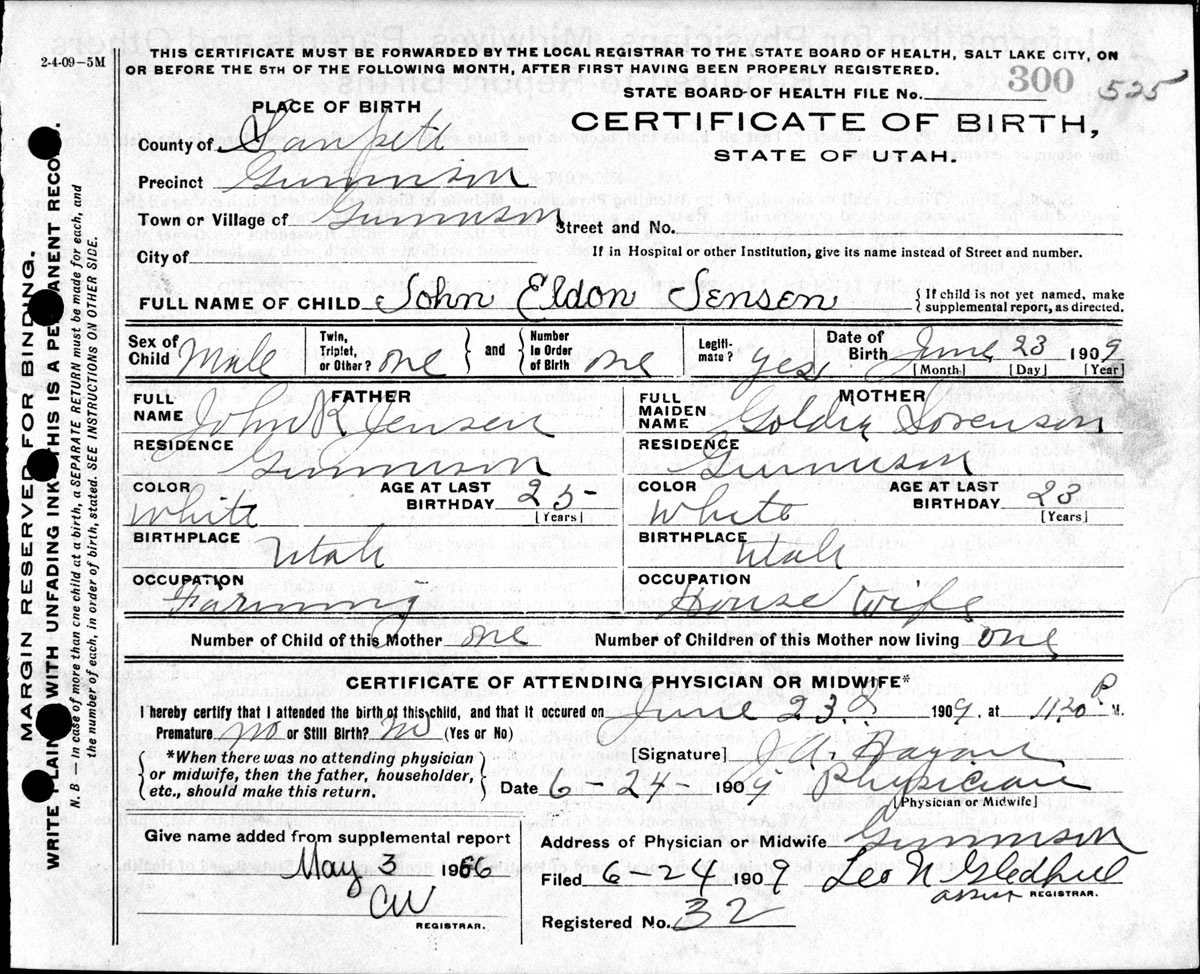 2-4-09-5M
THIS CERTIFICATE MUST BE FORWARDED BY THE LOCAL REGISTRAR TO THE STATE BOARD OF HEALTH, SALT LAKE CITY, ON
OR BEFORE THE 5TH OF THE FOLLOWING MONTH, AFTER FIRST HAVING BEEN PROPERLY REGISTERED.
STATE BOARD OF HEALTH FILE No. 300 525
PLACE OF BIRTH
CERTIFICATE OF BIRTH,
STATE OF UTAH.
County of Sanpete
Precinct Gunnison
Town or Village of Gunnison Street and No.
City of If in Hospital or other Institution, give its name instead of Street and number.
FULL NAME OF CHILD John Eldon Jensen { If child is not yet named, make supplemental report, as directed.
Sex of Child Male Twin, Triplet, or Other? one } and { Number In Order of Birth one Legiti-mate? yes Date of Birth June 23 1909
[Month] [Day] [Year]
FATHER MOTHER
FULL NAME John R Jensen FULL MAIDEN NAME Goldia Sorenson
RESIDENCE Gunnison RESIDENCE Gunnison
COLOR White AGE AT LAST BIRTHDAY 25 [Years] COLOR White AGE AT LAST BIRTHDAY 23 [Years]
BIRTHPLACE Utah BIRTHPLACE Utah
OCCUPATION Farming OCCUPATION House wife
Number of Child of this Mother one Number of Children of this Mother now living one
CERTIFICATE OF ATTENDING PHYSICIAN OR MIDWIFE*
I hereby certify that I attended the birth of this child, and that it occured on June 23 1909, at 11:20 P M.
Premature no or Still Birth? no (Yes or No)
*When there was no attending physician or midwife, then the father, householder, etc., should make this return.
[Signature] J. A. Hagan
Date 6-24-1909 Physician
[Physician or Midwife]
Give name added from supplemental report
May 3 1966
CW
REGISTRAR.
Address of Physician or Midwife Gunnison
Filed 6-24 1909 Leo N Gledhill
assist REGISTRAR.
Registered No. 32
MARGIN RESERVED FOR BINDING.
WRITE PLAIN WITH UNFADING INK THIS IS A PE ANENT RECO .
N. B — In case of more than one child at a birth, a SEPARATE RETURN must be made for each, and
the number of each, in order of birth, stated. SEE INSTRUCTIONS ON OTHER SIDE.